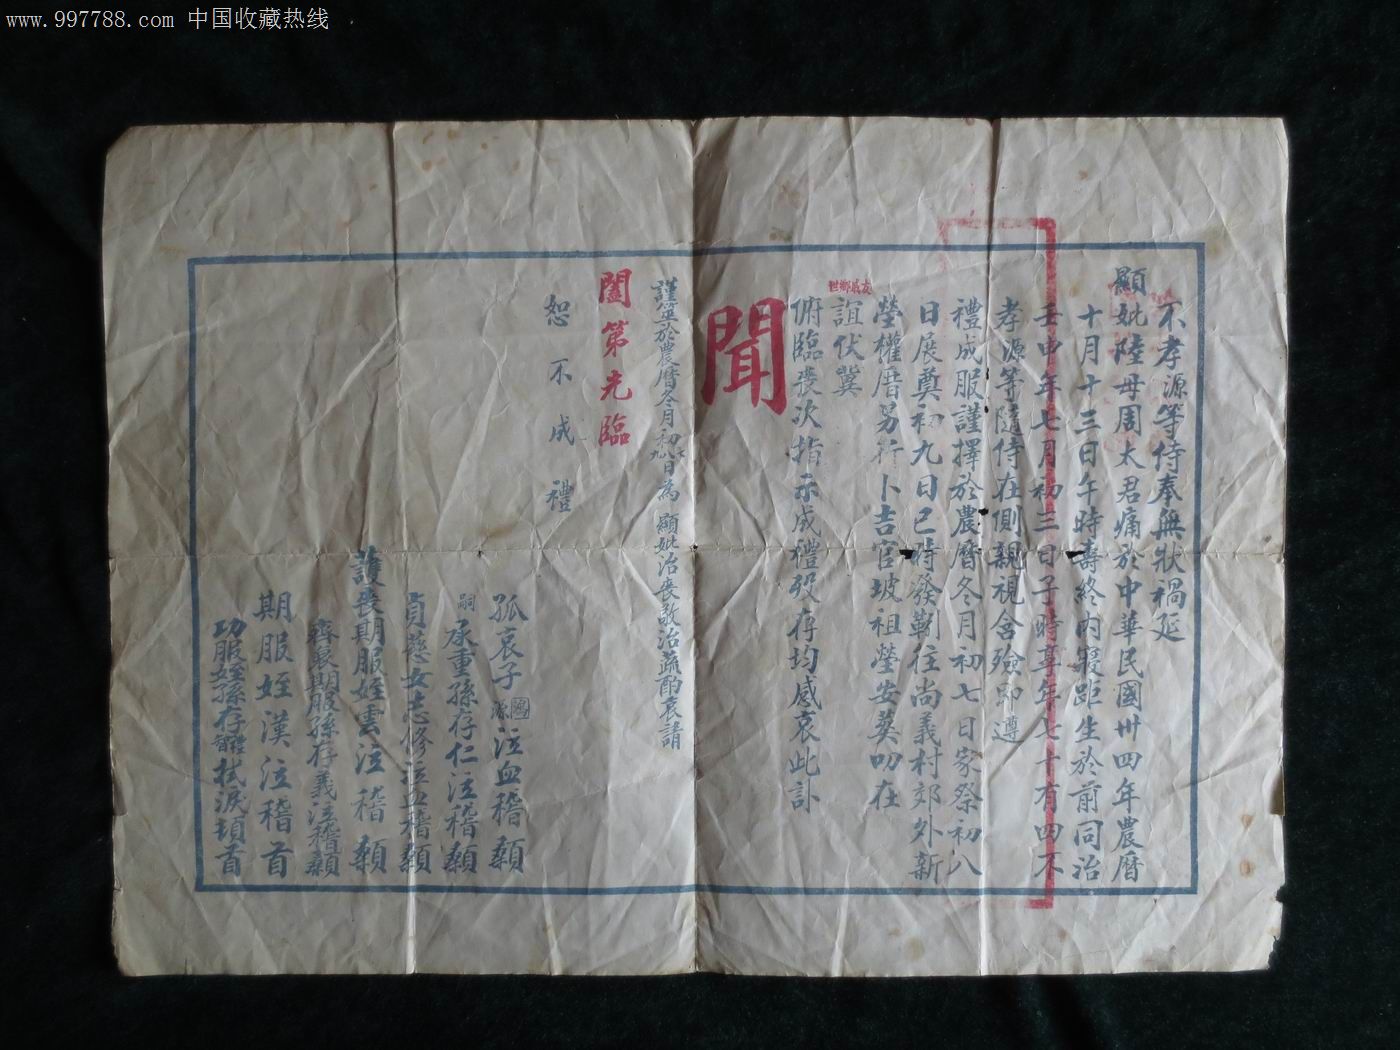 www.997788.com 中国收藏热线
不孝源等侍奉無狀禍延
顯妣陸母周太君痛於中華民國卅四年農曆
十月十三日午時壽終內寢距生於前同治
壬申年七月初三日子時享年七十有四不
孝源等隨侍在側親視含殮即遵
禮成服謹擇於農曆冬月初七日家祭初八
日展奠初九日巳時發靷往尚義村郊外新
塋權厝另行卜吉官坡祖塋安葬叨在
友戚鄉世
誼伏冀
俯臨喪次指示成禮歿存均感哀此訃
聞
謹筮於農曆冬月初七八九日為 顯妣治喪敬治蔬酌哀請
闔第光臨
恕不成禮
孤哀子源泣血稽顙
嗣承重孫存仁泣稽顙
貞慈女志修泣血稽顙
護喪期服姪雲泣稽顙
齊衰期服孫存義泣稽顙
期服姪漢泣稽首
功服姪孫存智禮拭淚頓首